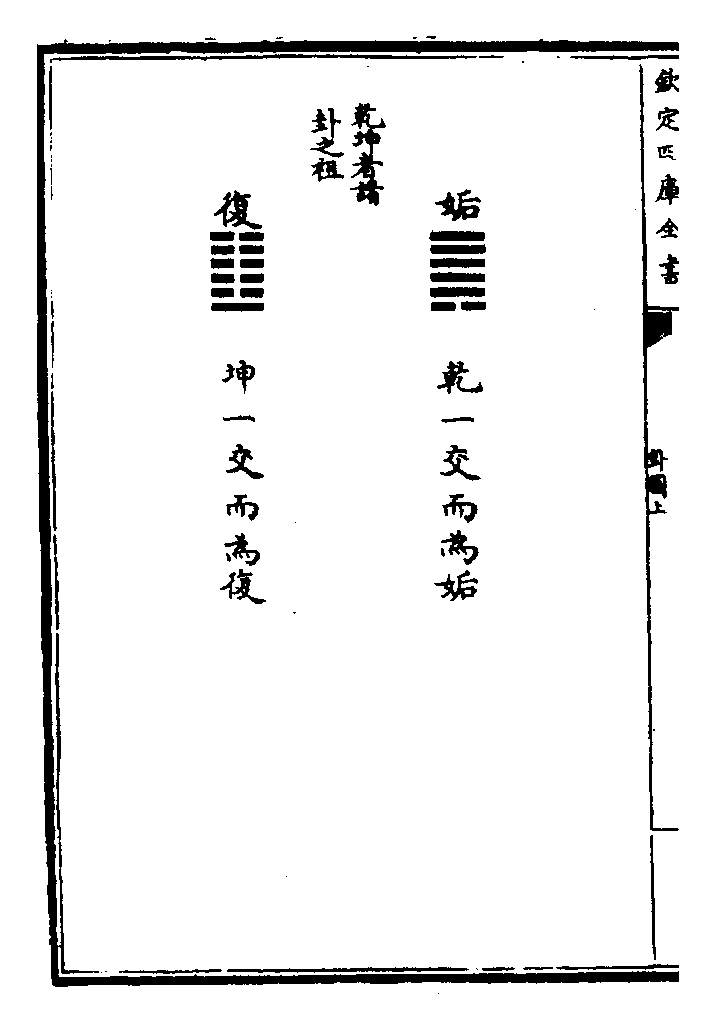 欽定四庫全書
卦圖上
姤
乾一交而為姤
乾坤者諸
卦之祖
復
坤一交而為復